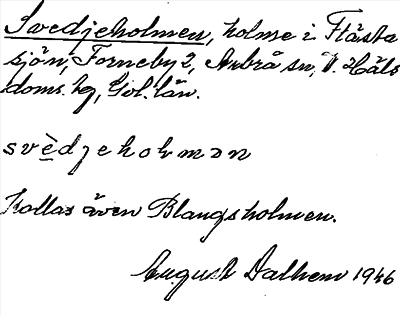 Svedjeholmen, holme i Flästa
sjön, Forneby 2, Arbrå sn, V. Häls
doms. hg, Gvl. län.
svèdjeholmən
Kallas även Blangsholmen.
August Dalhem 1946